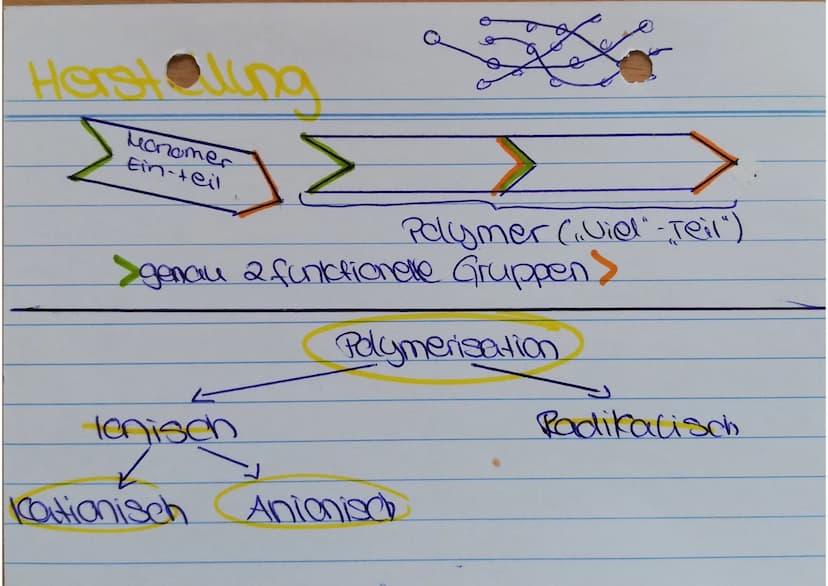 Herstellung
Monomer
Ein-teil
Polymer („Viel"-„Teil")
genau 2 funktionelle Gruppen
Polymerisation
Ionisch
Radikalisch
Kationisch
Anionisch